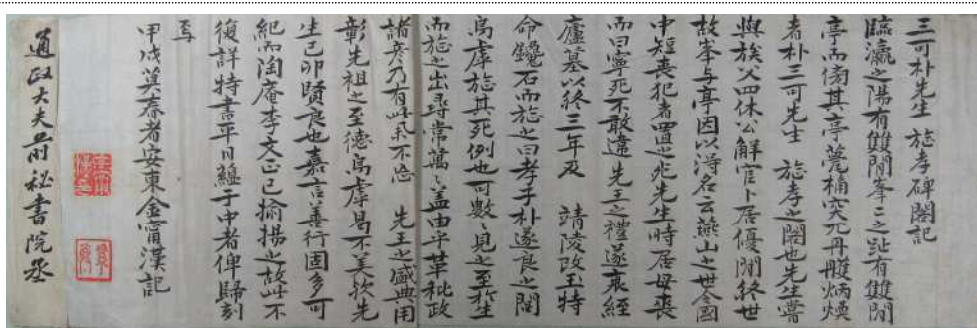 三可朴先生 旌孝碑閣記
臨瀛之陽有雙閒峯々之趾有雙閒
亭而傍其亭甍桷突兀丹雘炳煥
者朴三可先生 旌孝之閣也先生嘗
與族父四休公解官卜居優閒終世
故峯与亭因以得名云燕山之世令國
中短喪犯者置之死先生時居母喪
而曰寧死不敢違 先王之禮遂衰絰
廬墓以終三年及 靖陵改玉特
命鑱石而旌之曰孝子朴遂良之閭
烏虖旌其死例也可數々見之至於生
而旌之出尋常萬々盖由乎革秕政
諸彦乃有此式不忘 先王之盛典用
彰先祖之至德烏虖曷不美欤先
生己卯賢良也嘉言善行固多可
紀而陶庵李文正已揄揚之故此不
復詳特書平日鱣于中者俾歸刻
焉
甲戌莫春者安東金甯漢記
通政大夫前秘書院丞